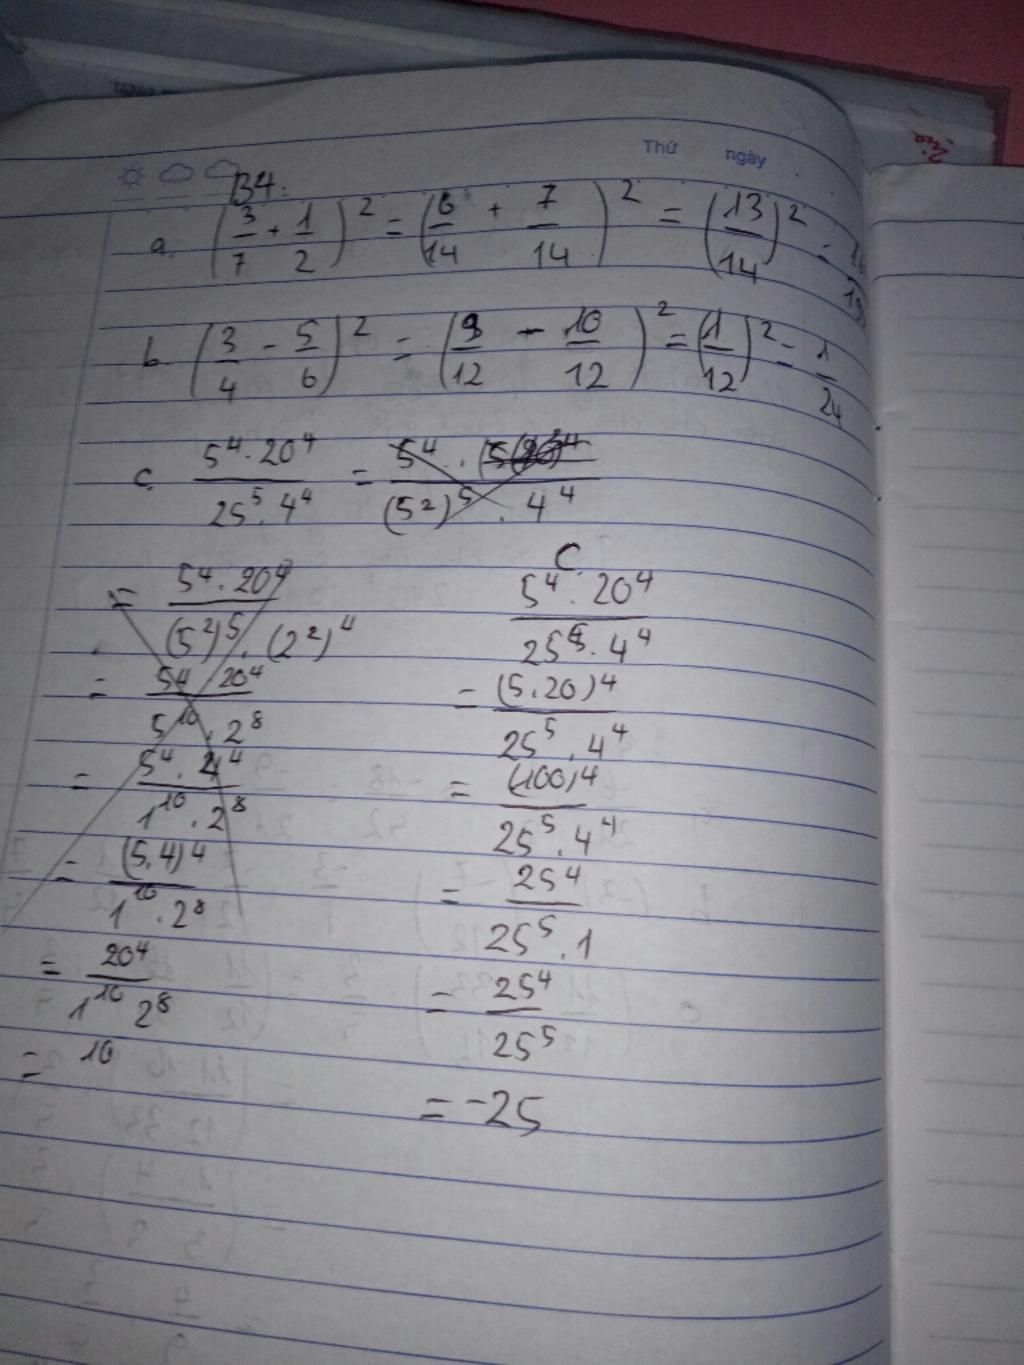 Thứ ngày
B4:
a. (3/7 + 1/2)² = (6/14 + 7/14)² = (13/14)² =
b. (3/4 - 5/6)² = (9/12 - 10/12)² = (1/12)² = 1/24
c. 5⁴.20⁴ / 25⁵.4⁴ = / (5²)⁵ . 4⁴
= 5⁴.20⁴ / (5²)⁵.(2²)⁴
= 5⁴ 20⁴ / 5¹⁰.2⁸
= 5⁴.4⁴ / 1¹⁰.2⁸
= (5.4)⁴ / 1¹⁰.2⁸
= 20⁴ / 1¹⁰ 2⁸
= 10
C
5⁴.20⁴ / 25⁵.4⁴
= (5.20)⁴ / 25⁵.4⁴
= (100)⁴ / 25⁵.4⁴
= 25⁴ / 25⁵.1
= 25⁴ / 25⁵
= -25